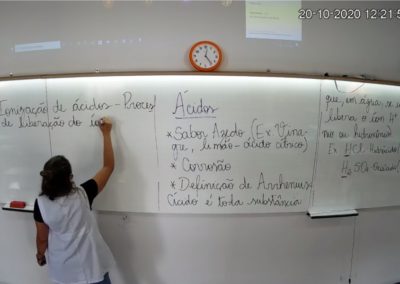 20-10-2020 12:21:5
Ionização de ácidos - Proces
de liberação do ío
Ácidos
* Sabor Azedo (Ex. Vina-
gre, limão - ácido cítrico)
* Corrosão
* Definição de Arrhenius:
Ácido é toda substância
que, em água, se i
libera o íon H⁺
Ex. HCl